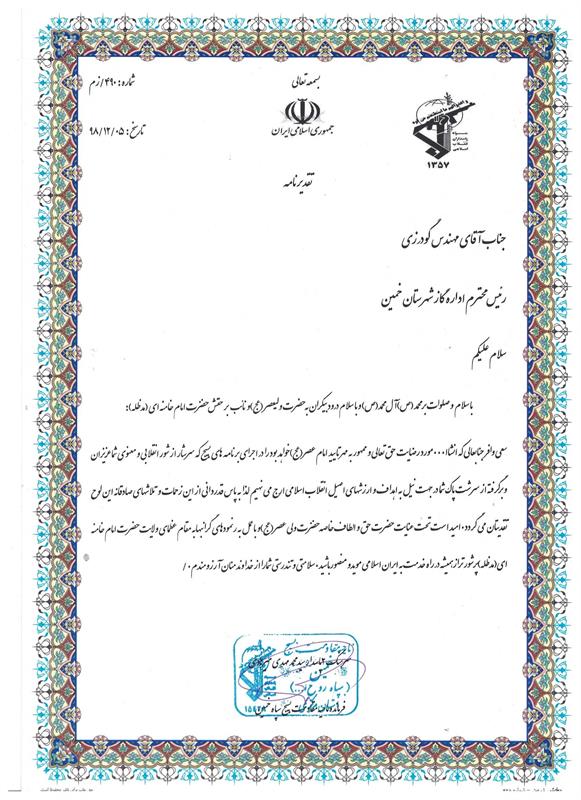 بسمه تعالی
شماره: ۴۹۰/زم
جمهوری اسلامی ایران
تاریخ: ۹۸/۱۲/۰۵
سپاه
پاسداران
انقلاب
اسلامی
۱۳۵۷
تقدیرنامه
جناب آقای مهندس گودرزی
رئیس محترم اداره گاز شهرستان خمین
سلام علیکم
باسلام و صلوات بر محمد(ص)آل محمد(ص)و باسلام درود بیکران به حضرت ولیعصر(عج)و نائب بر حقش حضرت امام خامنه ای (مدظله):
سعی وافر جنابعالی که انشاا۰۰۰مورد رضایت حق تعالی و ممهور به مهر تایید امام عصر(عج)خواهد بود را در اجرای برنامه های بسیج که سرشار از شور انقلابی و معنوی شما عزیزان
و برگرفته از سرشت پاک شما در جهت نیل به اهداف و ارزشهای اصیل انقلاب اسلامی ارج می نهیم لذا به پاس قدردانی از این زحمات و تلاشهای صادقانه این لوح
تقدیمتان می گردد۰امید است تحت عنایات حضرت حق و الطاف خاصه حضرت ولی عصر(عج)و با عمل به رهنمودهای گرانبها به مقام عظمای ولایت حضرت امام خامنه
ای(مدظله)پرشورتر از همیشه در راه خدمت به ایران اسلامی موید و منصور باشید۰سلامتی و تندرستی شما را از خداوند منان آرزومندم۰/
ناحیه مقاومت بسیج
سرهنگ پاسدار سید محمد مهدی
خمین
(سپاه روح ا...)
فرمانده ناحیه مقاومت بسیج سپاه خمین